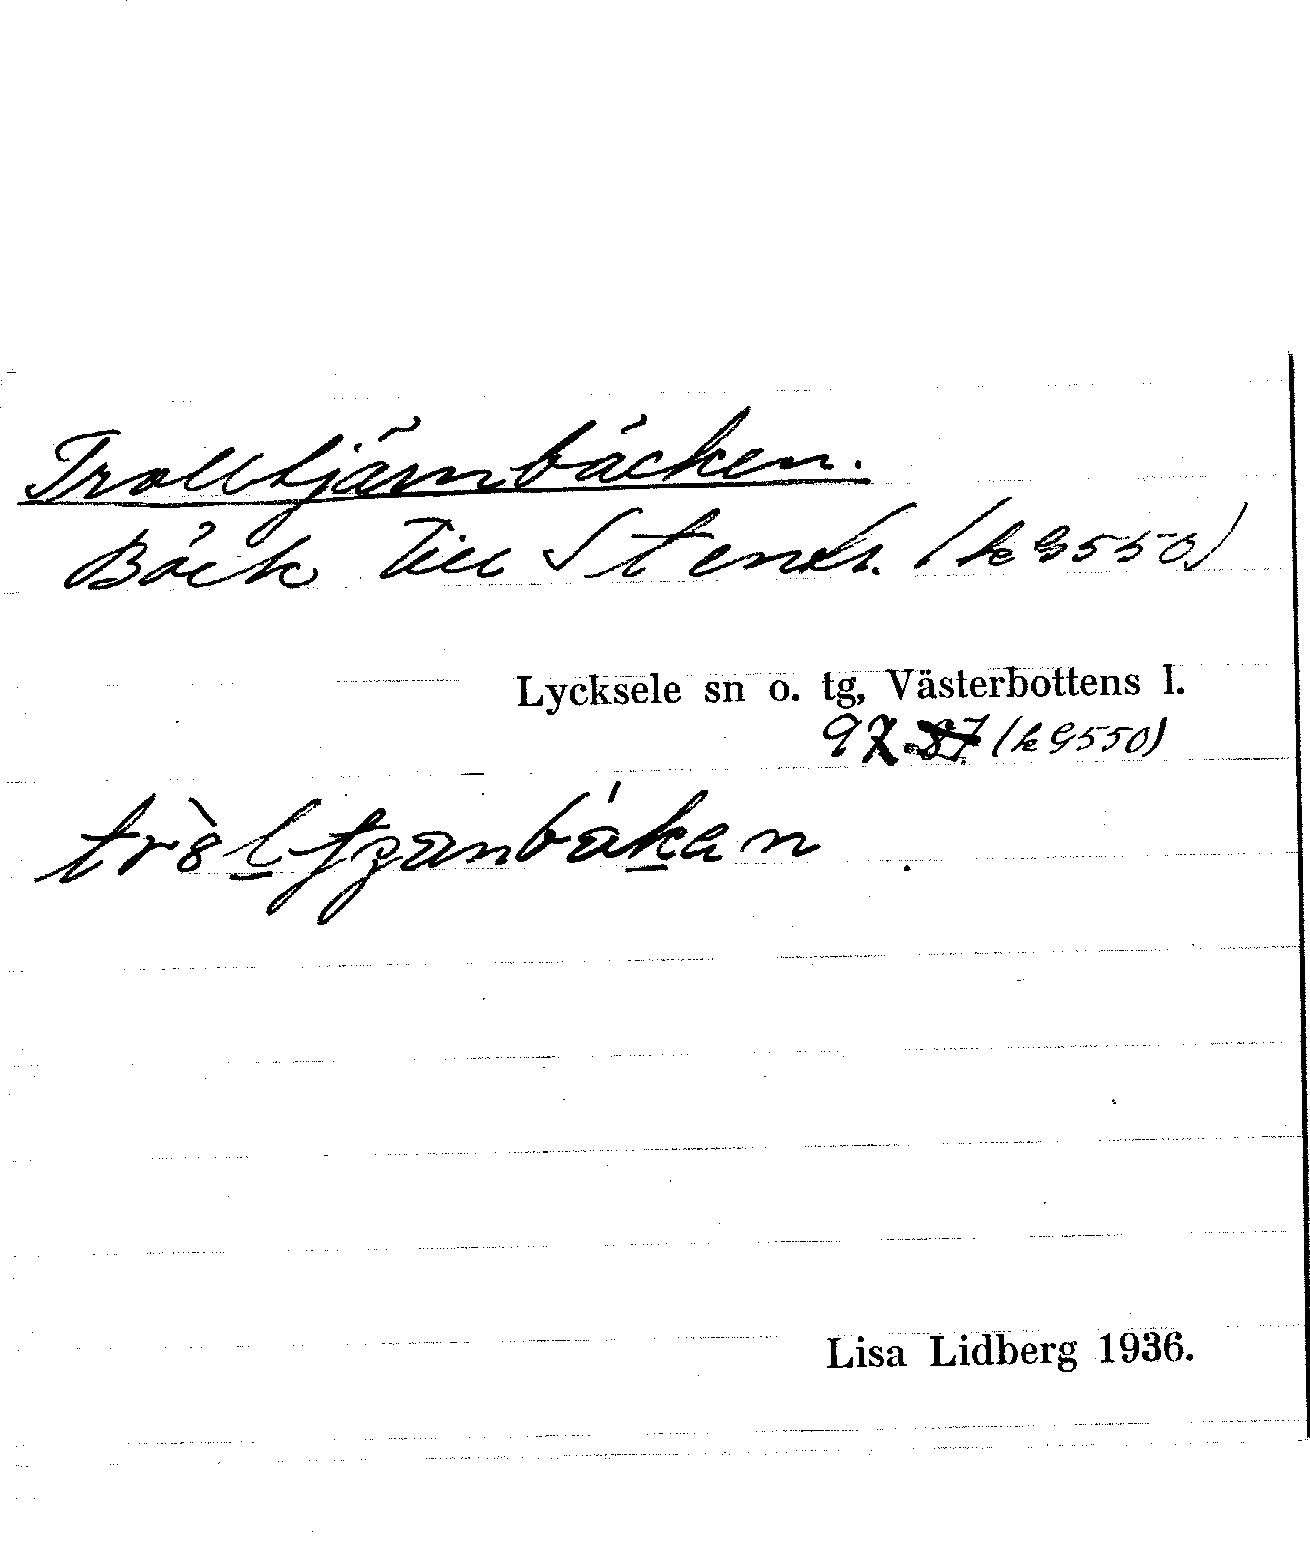 Trolltjärnbäcken.
Bäck till Stends. (k 9550)
Lycksele sn o. tg, Västerbottens l.
97 (k 9550)
Lisa Lidberg 1936.